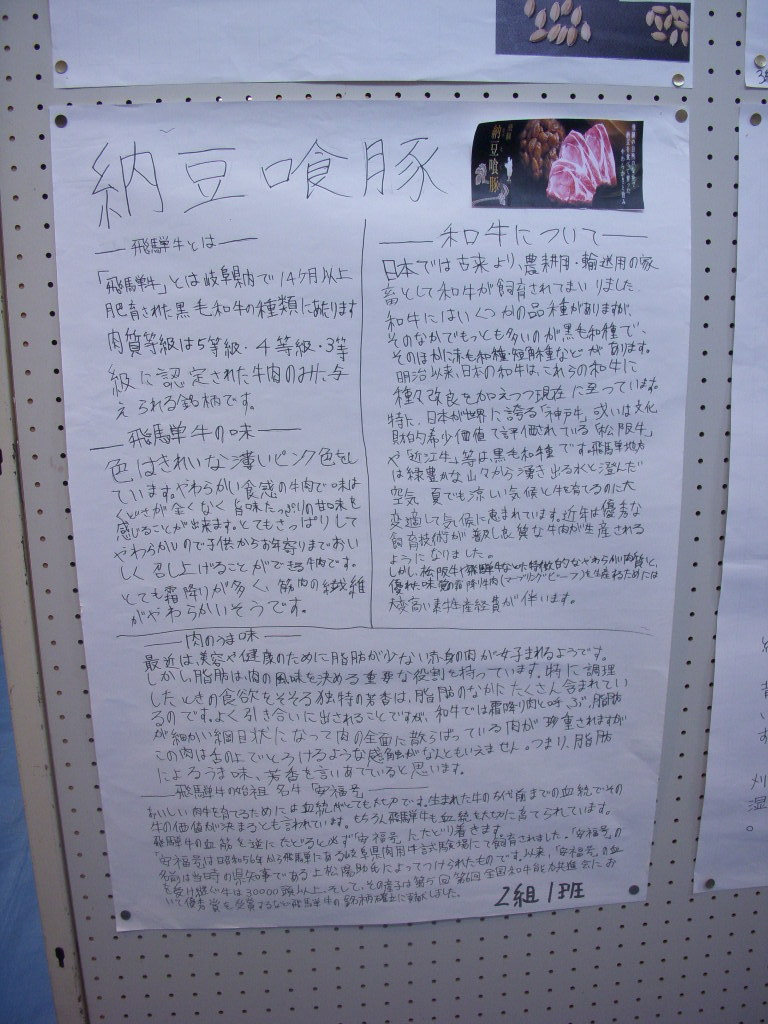 納豆喰豚
納豆喰豚
― 飛騨牛とは ―
「飛騨牛」とは岐阜県内で14ヶ月以上
肥育された黒毛和牛の種類にあたります
肉質等級は5等級・4等級・3等
級に認定された牛肉のみに与
えられる銘柄です。
― 飛騨牛の味 ―
色はきれいな薄いピンク色をし
ています。やわらかい食感の牛肉で味は
くどさが全くなく旨味たっぷりの甘味を
感じることが出来ます。とてもさっぱりして
やわらかいので子供からお年寄りまでおい
しく召し上げることができる牛肉です。
とても霜降りが多く、筋肉の繊維
がやわらかいそうです。
― 和牛について ―
日本では古来より、農耕用・輸送用の家
畜として和牛が飼育されてまいりました
和牛にはいくつかの品種がありますが、
そのなかでもっとも多いのが黒毛和種で、
そのほかに赤毛和種・短角種などがあります。
明治以来、日本の和牛は、これらの和牛に
種々改良を加えつつ現在に至っています。
特に、日本が世界に誇る「神戸牛」或いは文化
財的希少価値で評価されている「松阪牛」
や「近江牛」等は黒毛和種です。飛騨地方
は緑豊かな山々から湧き出る水と澄んだ
空気、夏でも涼しい気候と牛を育てるのに大
変適して気候に恵まれています。近年は優秀な
飼育技術が普及し良質な牛肉が生産される
ようになりました。
しかし、松阪牛や飛騨牛などの特徴的なやわらかい肉質と、
優れた味覚の霜降り牛肉(マーブリングビーフ)を生産するためには
大変高い素牛生産経費が伴います。
― 肉のうま味 ―
最近は、美容や健康のために脂肪が少ない赤身の肉が好まれるようです。
しかし、脂肪は、肉の風味を決める重要な役割を持っています。特に調理
したときの食欲をそそる独特の芳香は、脂肪のなかにたくさん含まれてい
るのです。よく引き合いに出されることですが、和牛では霜降り肉と呼ぶ、脂肪
が細かい網目状になって肉の全面に散らばっている肉が珍重されますが
この肉は舌の上でとろけるような感触がなんともいえません。つまり、脂肪
によるうま味、芳香を言いあてていると思います。
― 飛騨牛の始祖 名牛「安福号」 ―
おいしい肉牛を育てるためには血統がとても大切です。生まれた牛の5代前までの血統でその
牛の価値が決まるとも言われています。もちろん飛騨牛も血統を大切に育てられています。
飛騨牛の血筋を逆にたどると必ず「安福号」にたどり着きます。
「安福号」は昭和56年から飛騨にある岐阜県肉用牛試験場にて飼育されました。「安福号」の
名前は当時の県知事である上松陽助氏によってつけられたものです。以来、「安福号」の血
を受け継ぐ牛は30000頭以上。そして、その産子は第5回第6回全国和牛能力共進会にお
いて優秀賞を受賞するなど飛騨牛の銘柄確立に貢献しました。
2組1班